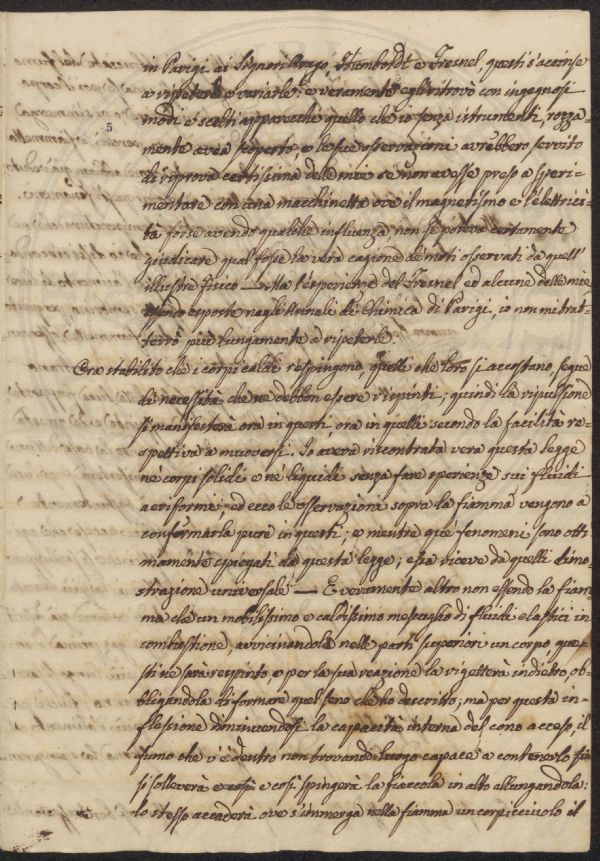 in Parigi ai Signori Arago, Humboldt e Fresnel, questi s'accinse
a ripeterle e variarle; e veramente egli ritrovò con ingegnosi
modi e scelti apparecchi quello che io senza istrumenti, rozza-
5
mente avea scoperto, e le sue osservazioni avrebbero servito
di riprova certissima delle mie se non avesse preso a speri-
mentare con una macchinetta ove il magnetismo e l'elettrici-
tà forse avendo qualche influenza non si poteva certamente
giudicare qual fosse la vera cagione de' moti osservati da quell'
illustre fisico — Ma l'esperienze del Fresnel ed alcune delle mie
essendo esposte negli Annali di Chimica di Parigi, io non mi trat-
terrò più lungamente a ripeterle.
Ora stabilito che i corpi caldi respingono, quelli che loro si accostano, segue
di necessità che ne debbon essere respinti; quindi la ripulsione
si manifesterà ora in questi ora in quelli secondo la facilità re-
spettiva a muoversi. Io aveva riscontrata vera questa legge
ne' corpi solidi e ne' liquidi senza fare sperienze sui fluidi
aeriformi; ed ecco le osservazioni sopra la fiamma vengono a
confermarla pure in questi; e mentre que' fenomeni sono otti-
mamente spiegati da questa legge; essa riceve da quelli dimo-
strazione universale — E veramente altro non essendo la fiam-
ma che un mobilissimo e caldissimo mescuglio di fluidi elastici in
combustione, avvicinandole nelle parti superiori un corpo, que-
sti ne sarà respinto, e per la sua reazione la rigetterà indietro, ob-
bligandola di formare quel seno che ho descritto; ma per questa in-
flessione diminuendosi la capacità interna del cono acceso, il
fumo che v'è dentro non trovando luogo capace a contenerlo
si solleverà e così spingerà la fiaccola in alto allungandola:
lo stesso accaderà ove s'immerga nella fiamma un corpicciuolo il